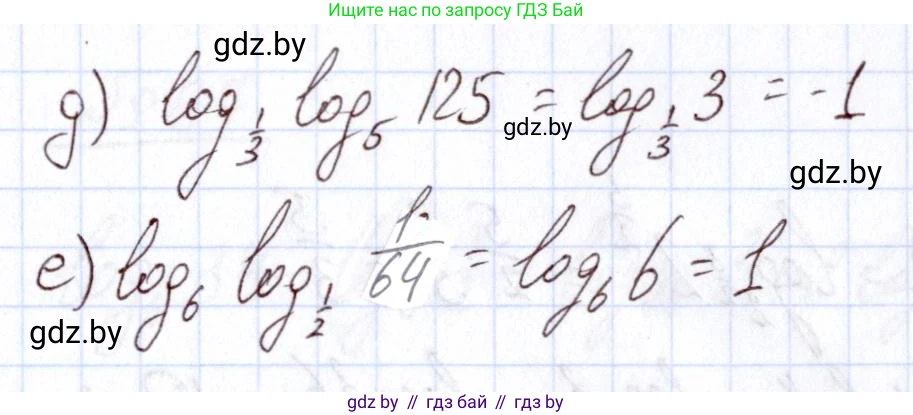 Ищите нас по запросу ГДЗ Бай
gdz.by
д) log_{1/3} log_5 125 = log_{1/3} 3 = -1
gdz.by
gdz.by
е) log_6 log_{1/2} 1/64 = log_6 6 = 1
gdz.by
gdz.by // гдз бай // гдз by